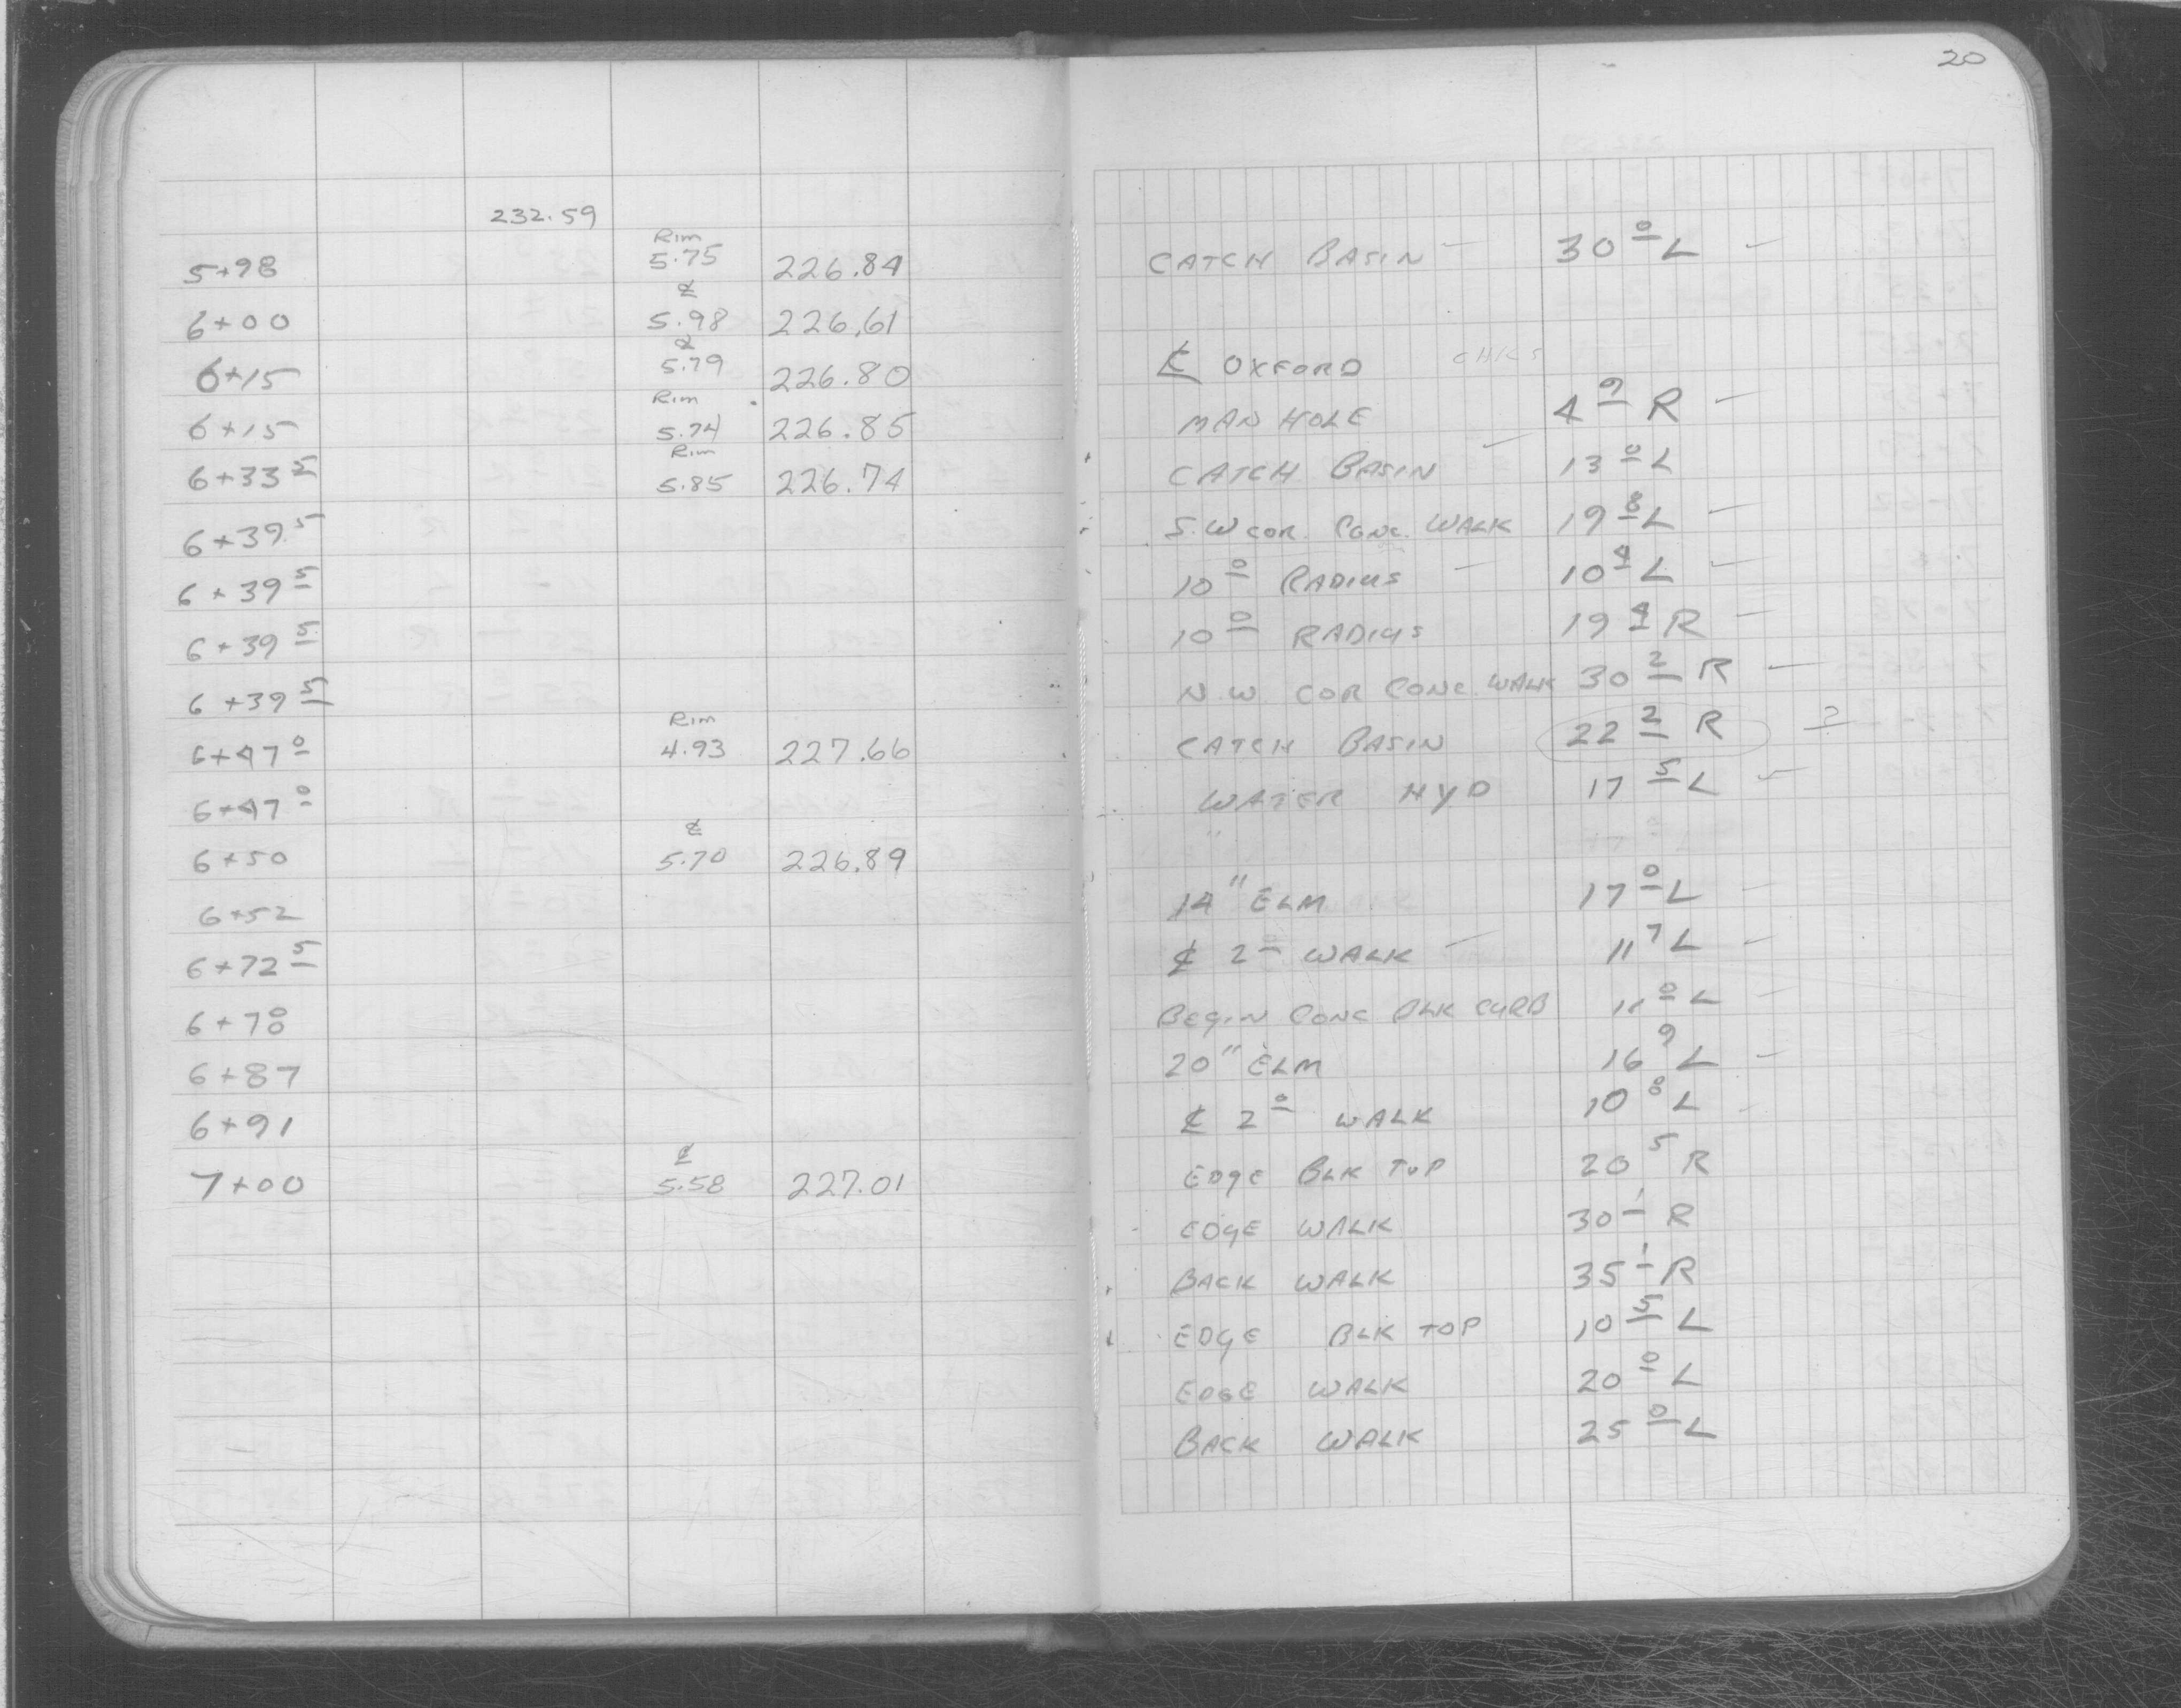 20
232.59
Rim
5+98 5.75 226.84 CATCH BASIN — 30 0 L —
℄
6+00 5.98 226.61
℄
6+15 5.79 226.80 ℄ OXFORD CHKS
Rim
6+15 5.74 226.85 MAN HOLE 4 9 R —
Rim
6+33 5 5.85 226.74 CATCH BASIN — 13 0 L
6+39.5 S.W COR. CONC. WALK 19 8 L —
6+39 5 10 0 RADIUS — 10 4 L —
6+39 5 10 0 RADIUS 19 4 R —
6+39 5 N.W. COR CONC. WALK 30 2 R —
Rim
6+47 0 4.93 227.66 CATCH BASIN 22 2 R ?
6+47 0 WATER HYD 17 5 L —
℄
6+50 5.70 226.89 "
6+52 14" ELM 17 0 L —
6+72 5 ℄ 2 0 WALK — 11 7 L —
6+78 BEGIN CONC BLK CURB 11 0 L —
6+87 20" ELM 16 9 L —
6+91 ℄ 2 0 WALK 10 8 L —
℄
7+00 5.58 227.01 EDGE BLK TOP 20 5 R
EDGE WALK 30 1 R
BACK WALK 35 1 R
EDGE BLK TOP 10 5 L
EDGE WALK 20 0 L
BACK WALK 25 0 L